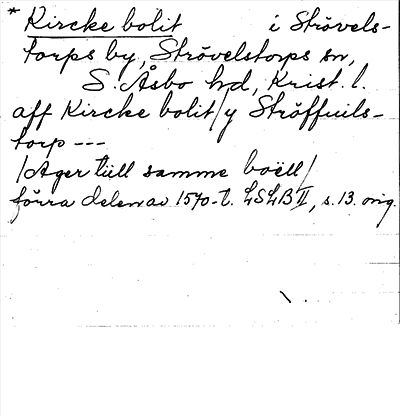 * Kircke bolit i Strövels-
torps by, Strövelstorps sn,
S. Åsbo hd, Krist. l.
aff Kircke bolit/y Ströffuils-
torp ---
/Ager till samme boëll/
förra delen av 1570-t. LSLB II, s. 13. orig.